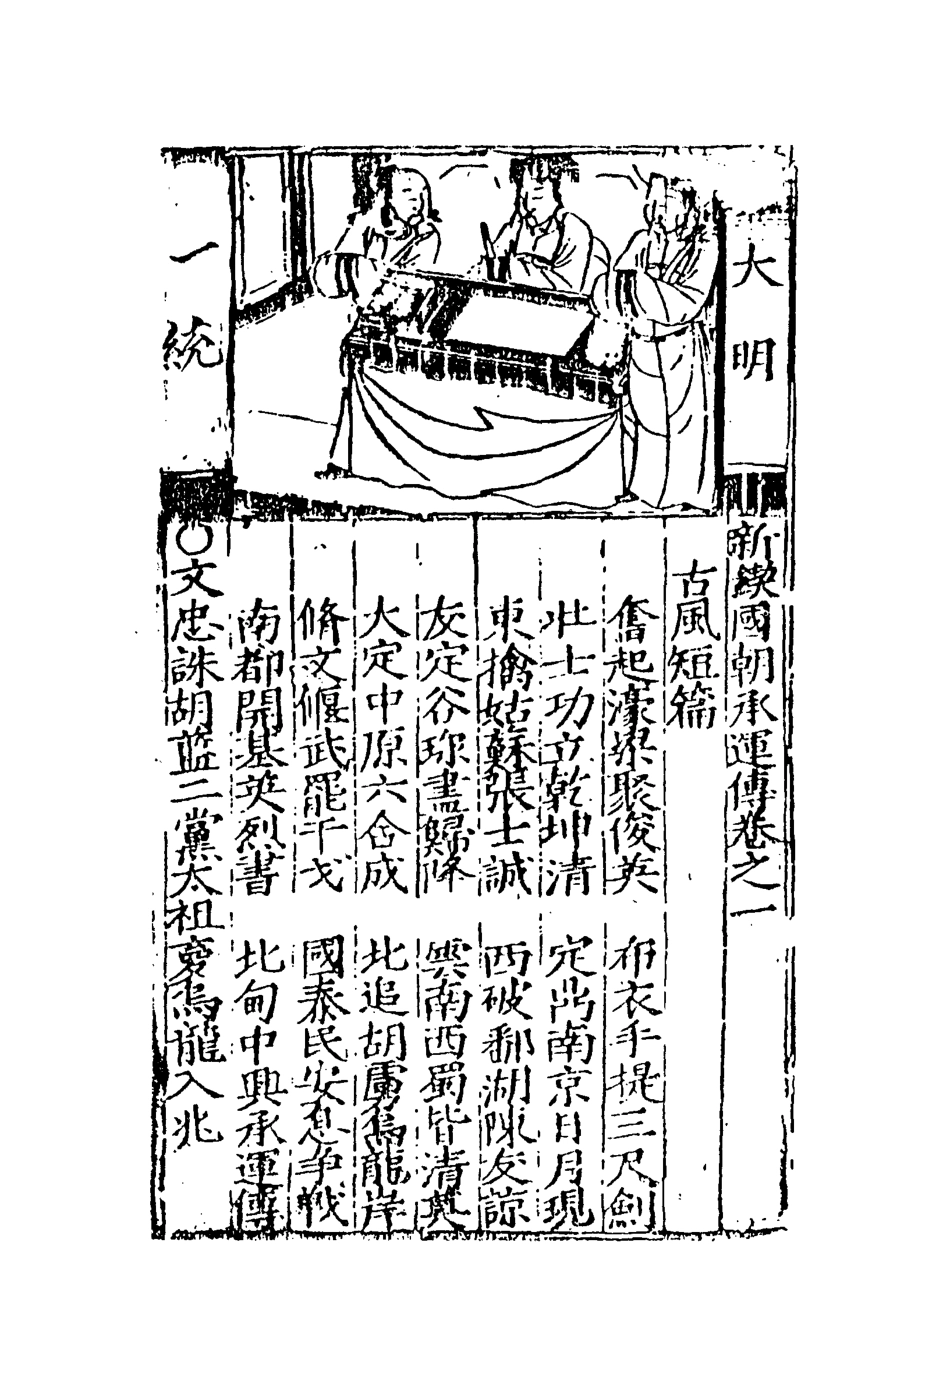 大明
一統
新鍥國朝承運傳卷之一
古風短篇
奮起濠梁聚俊英 布衣手提三尺劍
壯士功立乾坤清 定鼎南京日月現
東擒姑蘇張士誠 西破鄱湖陳友諒
友定谷珍盡歸降 雲南西蜀皆清奠
大定中原六合成 北追胡虜烏龍岸
脩文偃武罷干戈 國泰民安息爭戰
南都開基英烈書 北甸中興承運傳
○文忠誅胡藍二黨太祖夢烏龍入兆